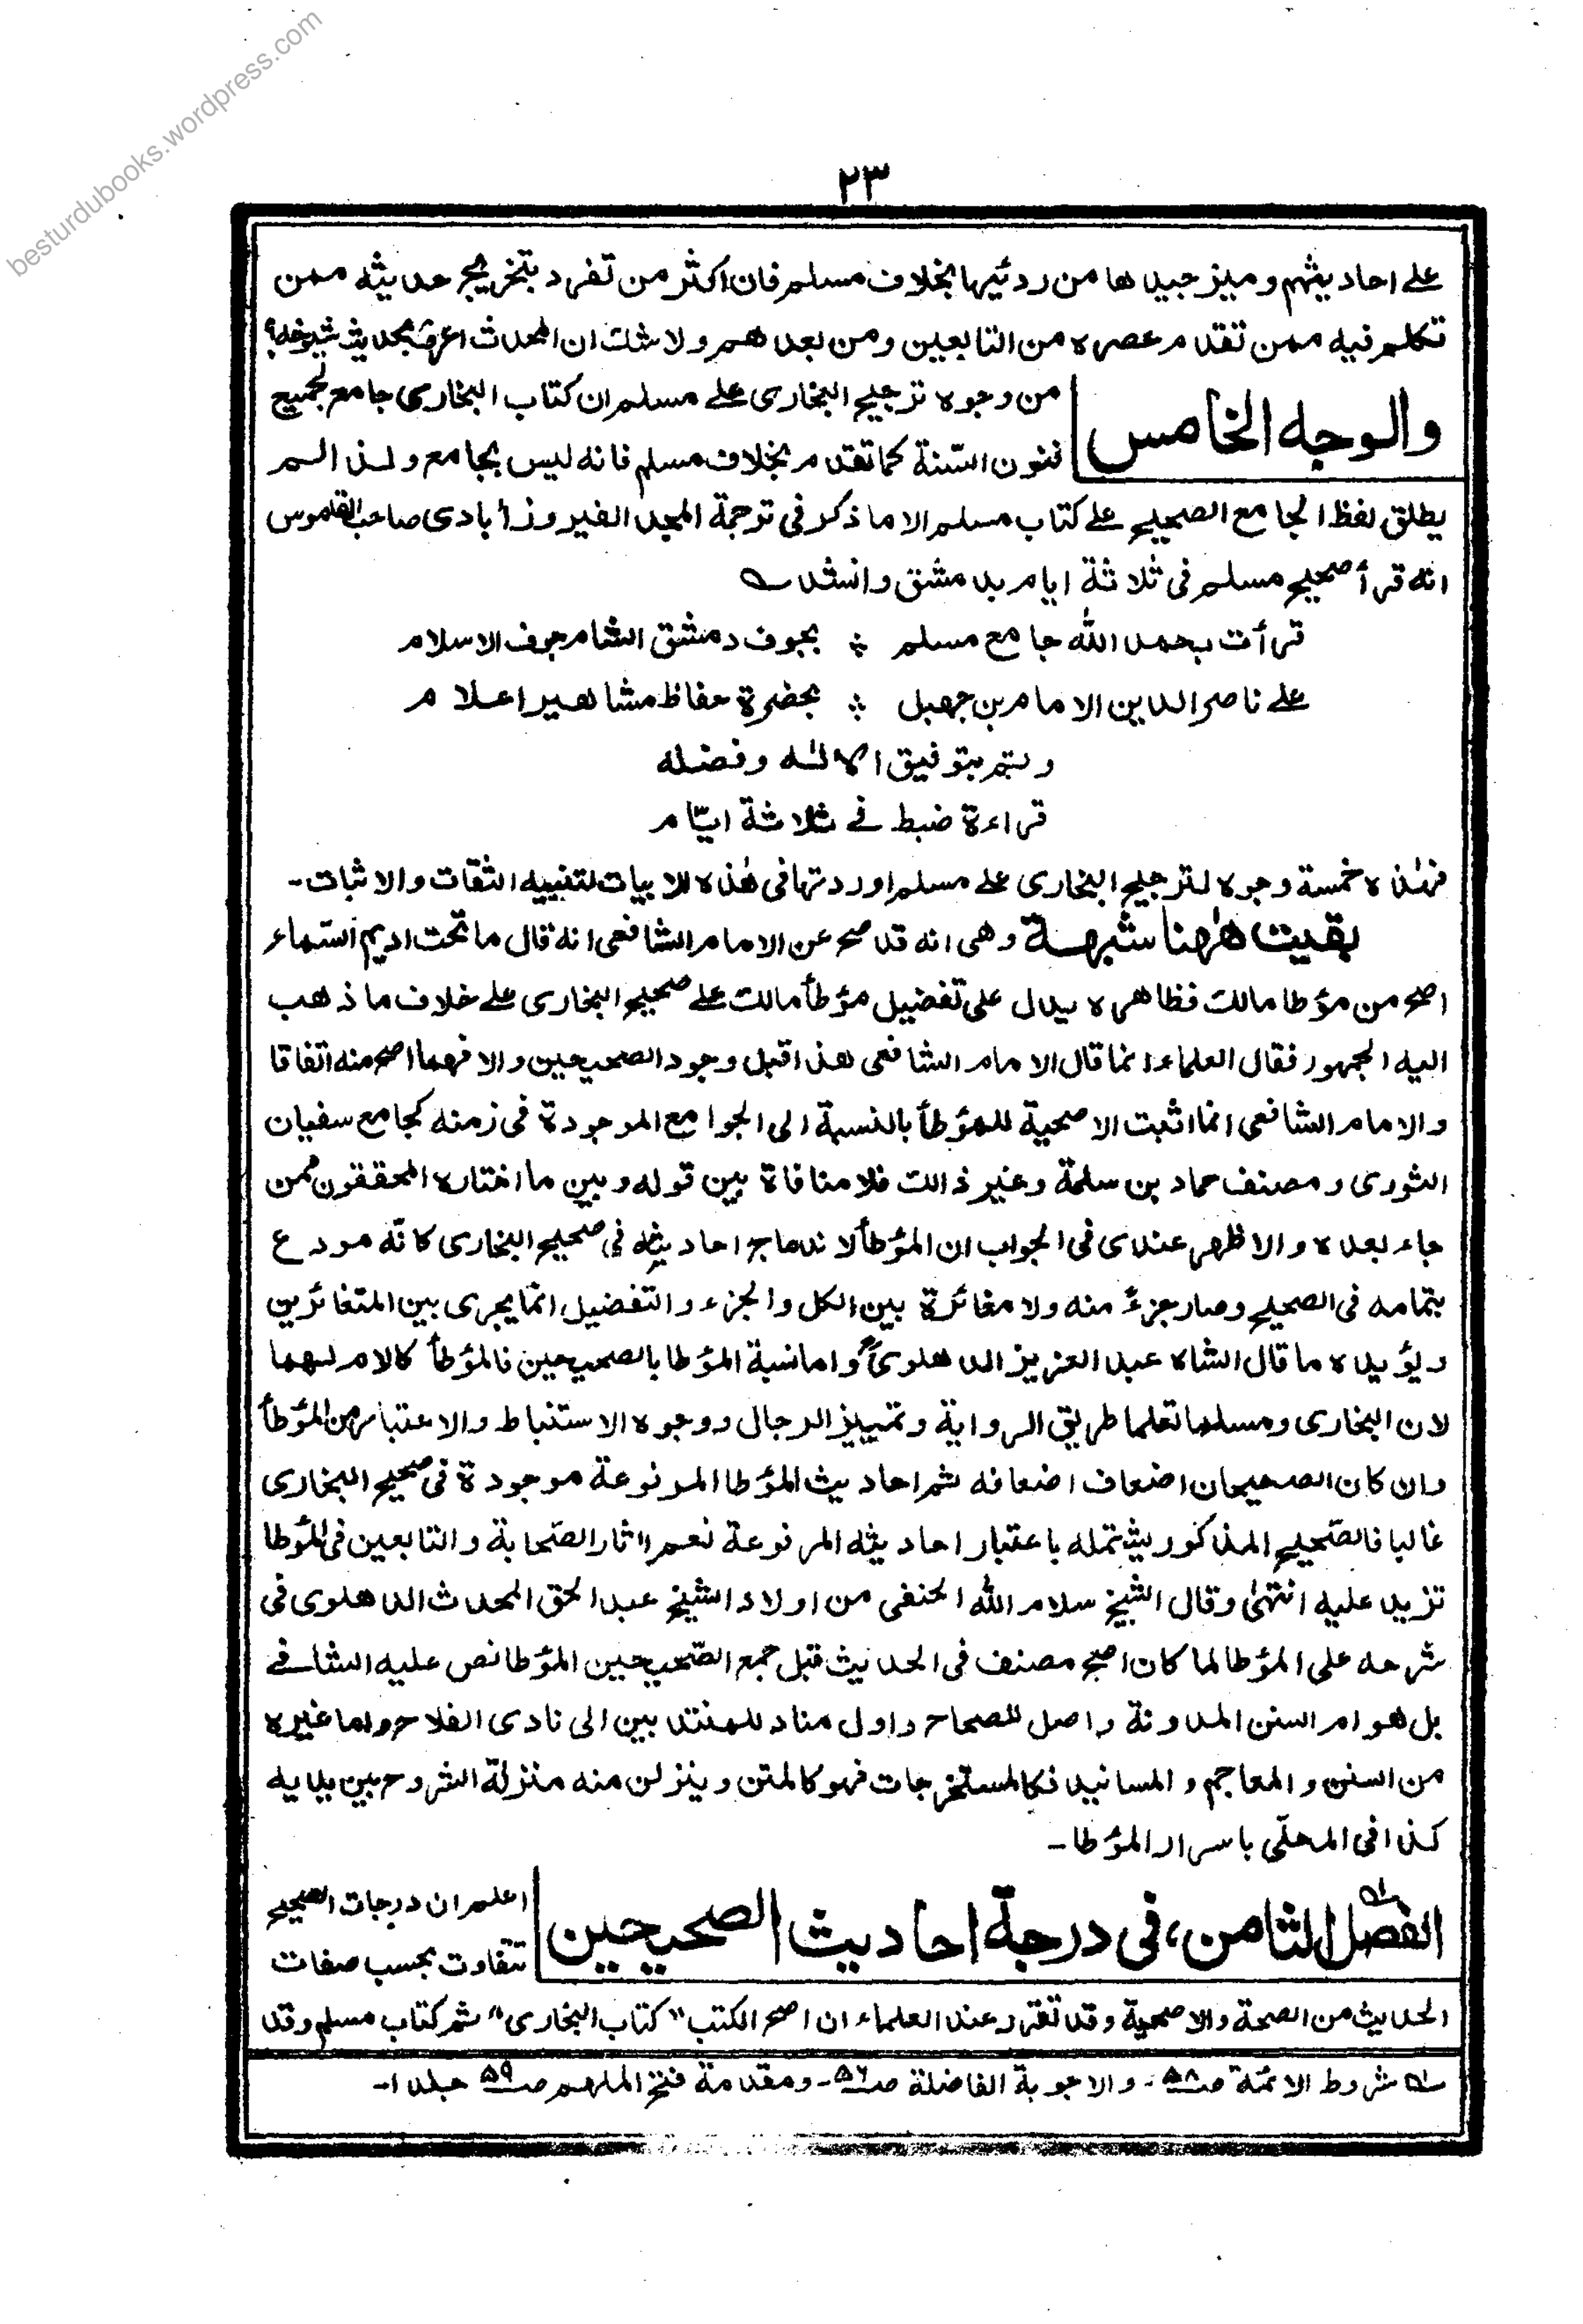 besturdubooks.wordpress.com
٢٣
على احاديثهم وميز جيدها من رديئها بخلاف مسلم فان اكثر من تفرد بتخريج حديثه ممن
تكلم فيه ممن تقدم عصره من التابعين ومن بعدهم ولا شك ان المحدث اعرف بحديث شيوخه
والوجه الخامس
من وجوه ترجيح البخاری علے مسلم ان كتاب البخاری جامع لجميع
فنون السّنة كما تقدم بخلاف مسلم فانه ليس بجامع ولذا لم
يطلق لفظ الجامع الصحيح علے كتاب مسلم الا ما ذكر فی ترجمة المجد الفيروزأبادی صاحب القاموس
انه قرأ صحيح مسلم فی ثلاثة ايام بدمشق وانشد ؎
قرأت بحمد الله جامع مسلم ؞ بجوف دمشق الشام جوف الاسلام
علے ناصر الدين الامام بن جهبل ؞ بحضرة حفاظ مشاهير اعلام
وتم بتوفيق الالٰه وفضله
قراءة ضبط فے ثلاثة ايّام
فهٰذه خمسة وجوه لترجيح البخاری علے مسلم اوردتها فی هٰذه الابيات لتنبيه الثقات والاثبات۔
بقيت هٰهنا شبهة وهی انه قد صح عن الامام الشافعی انه قال ما تحت اديم السّماء
اصح من مؤطا مالك فظاهره يدل علی تفضيل مؤطأ مالك علے صحيح البخاری علے خلاف ما ذهب
اليه الجمهور فقال العلماء انما قال الامام الشافعی هذا قبل وجود الصحيحين والا فهما اصح منه اتفاقا
والامام الشافعی انما اثبت الاصحية للمؤطأ بالنسبة الی الجوامع الموجودة فی زمنه كجامع سفيان
الثوری ومصنف حماد بن سلمة وغير ذالك فلا منافاة بين قوله وبين ما اختاره المحققون ممن
جاء بعده والاظهر عندی فی الجواب ان المؤطأ لاندماج احاديثه فی صحيح البخاری كانّه مودع
بتمامه فی الصحيح وصار جزءً منه ولا مغائرة بين الكل والجزء والتفضيل انما يجری بين المتغائرين
ويؤيده ما قال الشاه عبد العزيز الدهلویؒ واما نسبة المؤطا بالصحيحين فالمؤطأ كالام لهما
لان البخاری ومسلما تعلما طريق الرواية وتمييز الرجال ووجوه الاستنباط والاعتبار من المؤطأ
وان كان الصحيحان اضعاف اضعافه ثم احاديث المؤطا المرفوعة موجودة فی صحيح البخاری
غالبا فالصّحيح المذكور يشتمله باعتبار احاديثه المرفوعة نعم اثار الصّحابة والتابعين فی المؤطا
تزيد عليه انتهٰی وقال الشيخ سلام الله الحنفی من اولاد الشيخ عبد الحق المحدث الدهلوی فی
شرحه علی المؤطا لما كان اصح مصنف فی الحديث قبل جمع الصّحيحين المؤطا نص عليه الشافے
بل هو ام السنن المدونة واصل للصحاح واول مناد للمنتدبين الی نادی الفلاح واما غيره
من السنن والمعاجم والمسانيد فكالمستخرجات فهو كالمتن وينزلن منه منزلة الشروح بين يديه
كذا فی المحلّی باسرار المؤطا۔
الفصل الثامن، فی درجة احاديث الصحيحين
اعلم ان درجات الصحيح
تتفاوت بحسب صفات
الحديث من الصحة والاصحية وقد تقرر عند العلماء ان اصح الكتب "كتاب البخاری" ثم كتاب مسلم وقد
؎۱ شروط الائمة ص۵۸۔ والاجوبة الفاضلة ص۵۶۔ ومقدمة فتح الملهم ص۵۹ جلد ۱۔